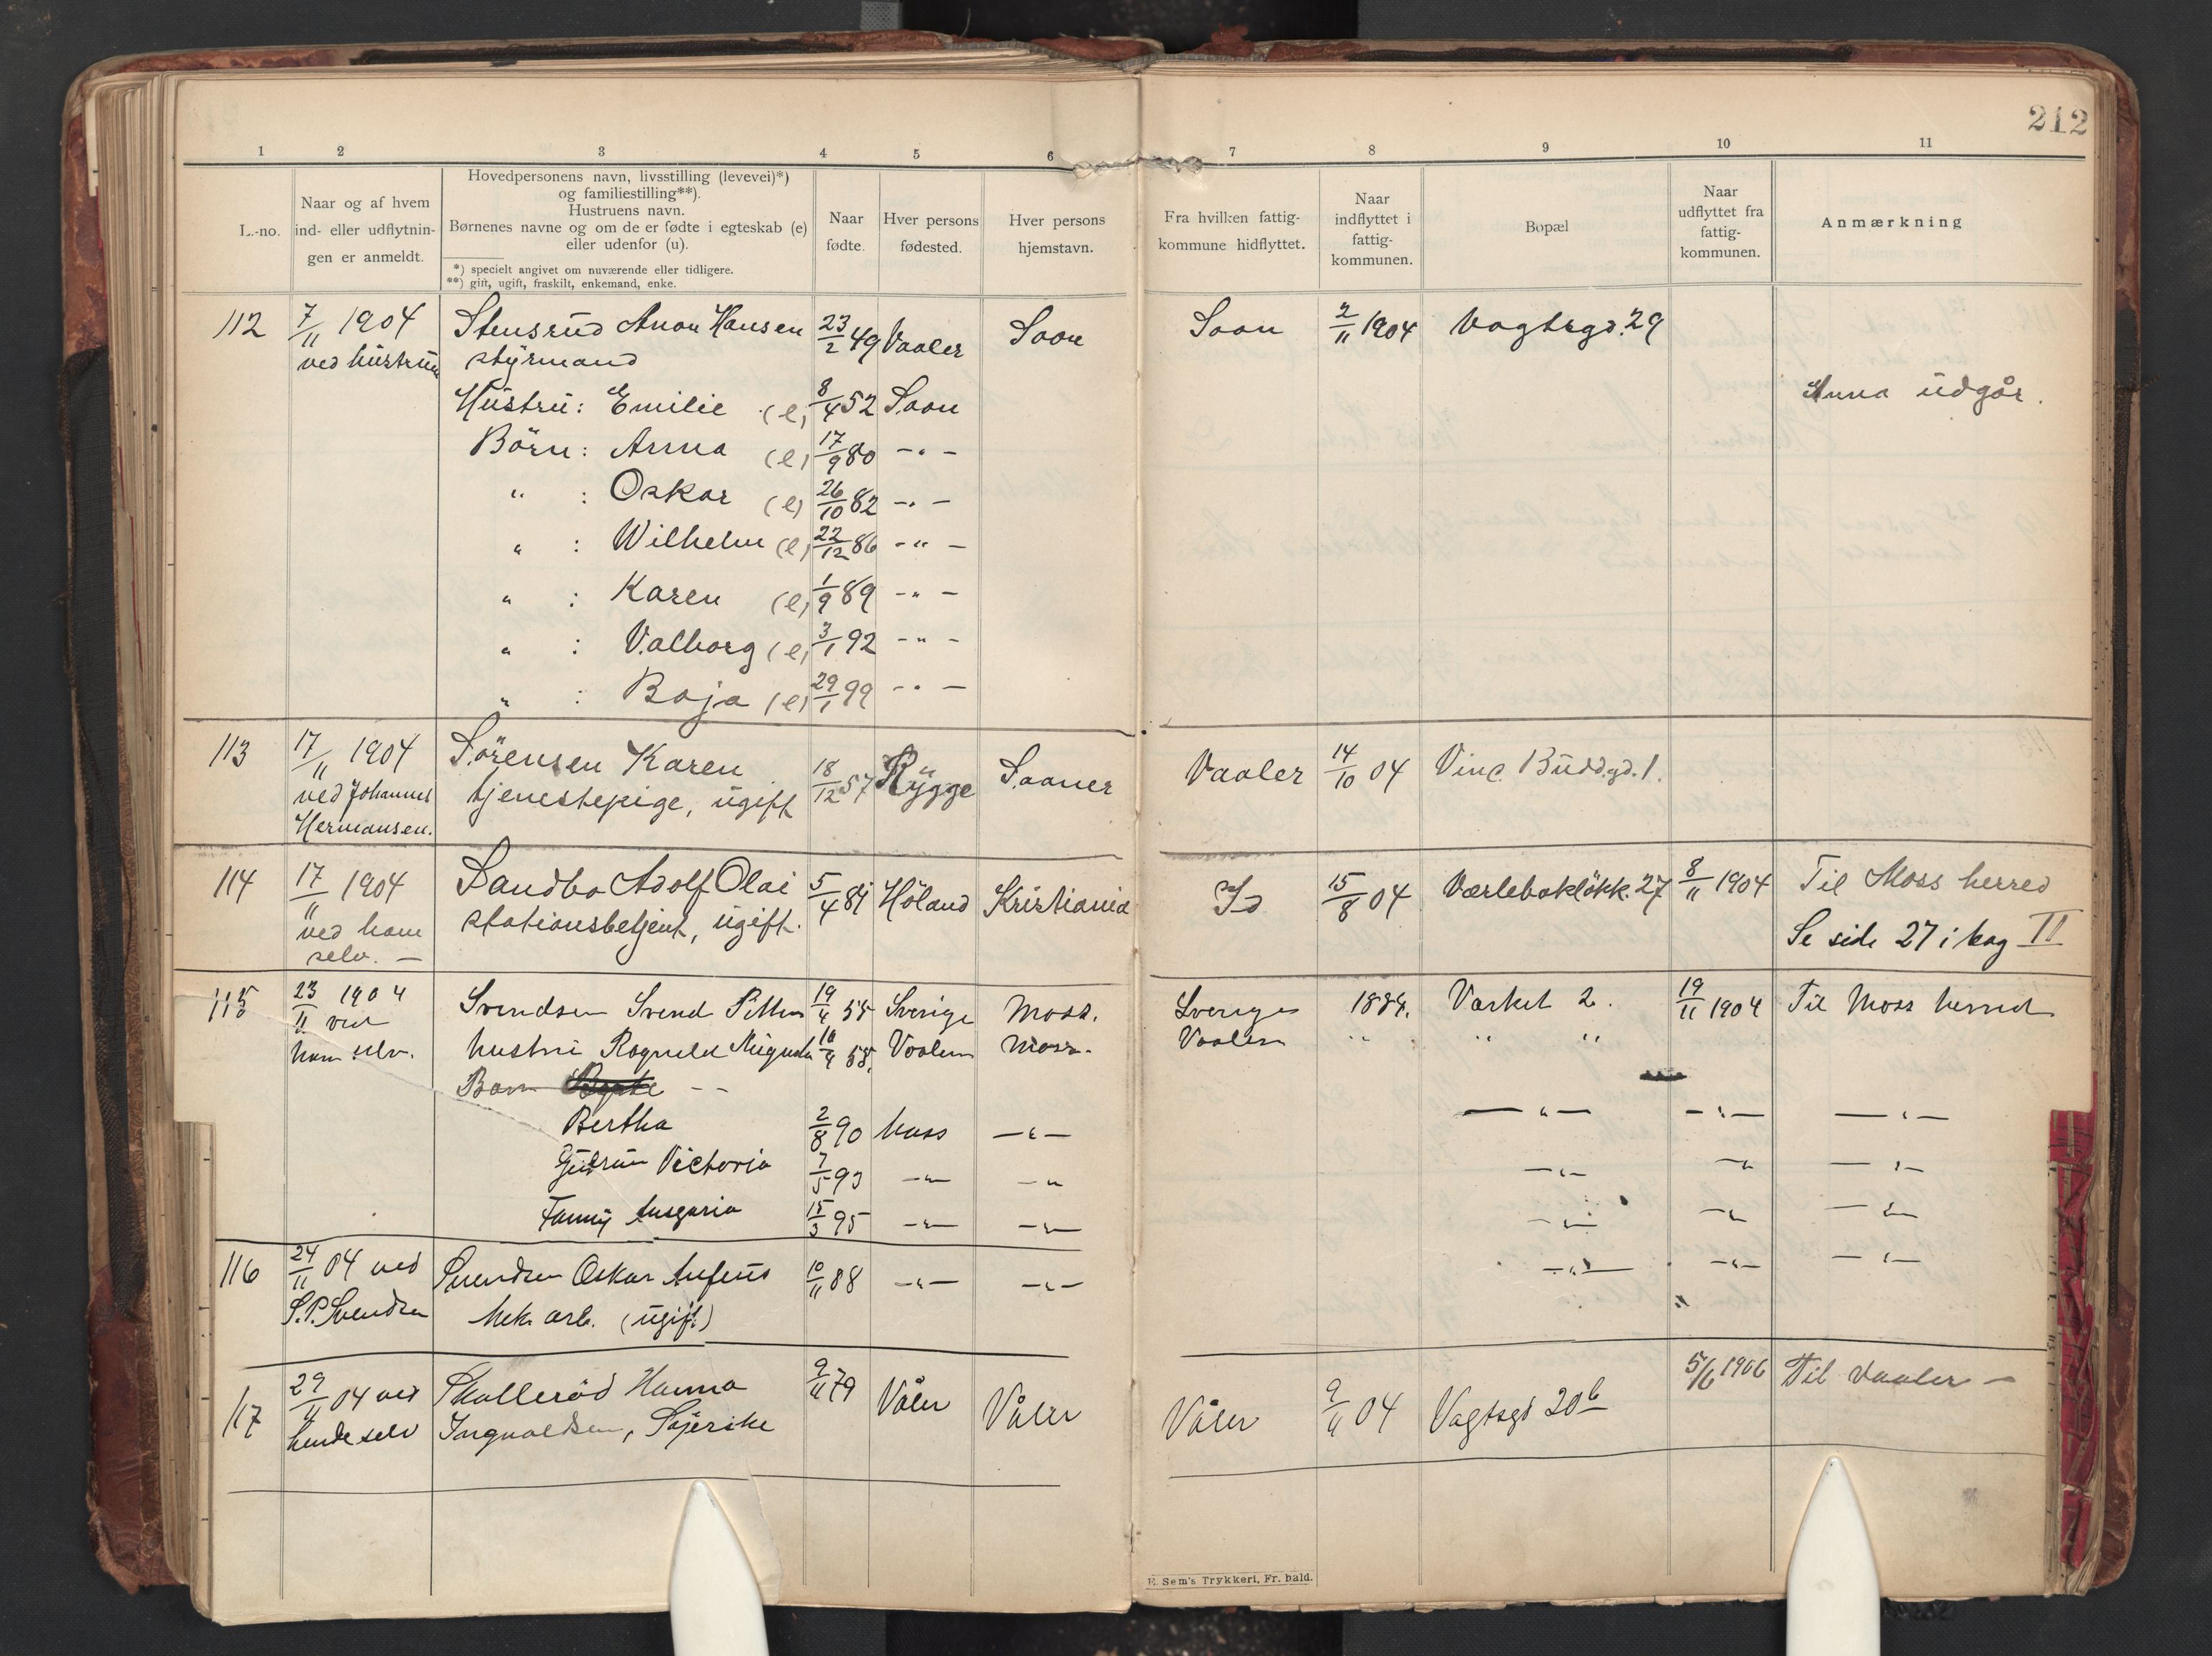 212
1 2 3 4 5 6 7 8 9 10 11
L.-no.
Naar og af hvem
ind- eller udflytnin-
gen er anmeldt.
Hovedpersonens navn, livsstilling (levevei)*)
og familiestilling**).
Hustruens navn.
Børnenes navne og om de er fødte i egteskab (e)
eller udenfor (u).
*) specielt angivet om nuværende eller tidligere.
**) gift, ugift, fraskilt, enkemand, enke.
Naar
fødte.
Hver persons
fødested.
Hver persons
hjemstavn.
Fra hvilken fattig-
kommune hidflyttet.
Naar
indflyttet i
fattig-
kommunen.
Bopæl
Naar
udflyttet fra
fattig-
kommunen.
Anmærkning
112 7/11 1904 Stensrud Anon Hansen 23/2 49 Vaaler Soon Soon 2/11 1904 Vogtsgd. 29
ved hustrun styrmand
Hustru: Emilie (e) 8/4 52 Soon Anna udgår.
Börn: Anna (e) 17/9 80 - " -
" : Oskar (e) 26/10 82 - " -
" : Wilhelm (e) 22/12 86 - " -
" : Karen (e) 1/9 89 - " -
" : Valborg (e) 3/1 92 - " -
" : Baja (e) 29/1 99 - " -
113 17/11 1904 Sörensen Karen 18/12 57 Rygge Saaner Vaaler 14/10 04 Vinc. Buddgd. 1.
ved Johannes tjenestepige, ugift
Hermansen.
114 17/11 1904 Sandbo Adolf Olai 5/4 81 Höland Kristiania Id 15/8 04 Værlebaklökk. 27 8/11 1904 Til Moss herred
ved ham stationsbetjent, ugift. Se side 27 i bog II
selv. —
115 23/11 1904 Svendsen Svend Petter 19/4 55 Sverige Moss. Sverige 1884. Værket 2. 19/11 1904 Til Moss herred
ved hustru Ragnild Augusta 18/4 58. Vaaler Moss. Vaaler " " "
ham selv.
Barn - -
Bertha 2/8 90 Moss — " — — " — — " — — " —
Gudrun Victoria 7/5 93 — " — — " — " — — " — " —
Fanny Ansgaria 15/3 95 — " — — " — — " — — " — " —
116 24/11 04 ved Svendsen Oskar Anfeus 10/11 88 — " — — " — — " — — " — — " —
S.P. Svendsen Mek. arb. (ugift)
117 29/11 04 ved Skallerød Hanna 9/11 79 Våler Våler Våler 9/11 04 Vagtsgd 20b 5/6 1906 Til Vaaler —
hende selv Ingvaldsen, Syerske
E. Sem's Trykkeri, Fr. hald.